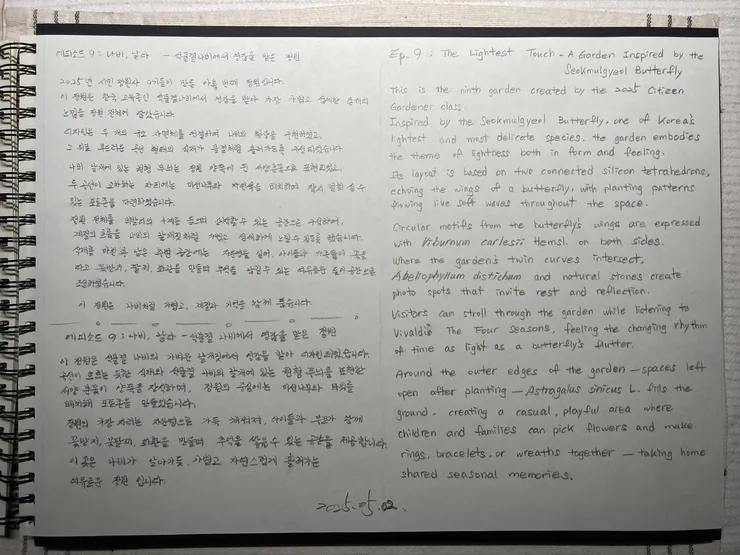 에피소드 9 : 나비, 날다 - 석물결나비에서 영감을 받은 정원
2025년 시민 정원사 9기들이 만든 아홉 번째 정원입니다.
이 정원은 한국 고유종인 석물결나비에서 영감을 받아 가장 가볍고 섬세한 존재의
느낌을 정원 전체에 담았습니다.
디자인은 두 개의 규소 사면체를 연결하여 나비의 형상을 구현하였고,
그 위로 부드러운 곡선 형태의 식재가 물결처럼 흘러가도록 구성되었습니다.
나비 날개에 있는 원형 무늬는 정원 양쪽에 핀 서양분꽃으로 표현되었고,
두 곡선이 교차하는 자리에는 미선나무와 자연석을 배치하여 잠시 쉴 수
있는 포토존을 마련하였습니다.
정원 전체를 비발디의 사계를 들으며 산책할 수 있는 공간으로 구성하여,
계절의 흐름을 나비의 날갯짓처럼 가볍고 섬세하게 느낄 수 있도록 했습니다.
식재를 마친 후 남은 주변 공간에는 자운영을 심어, 아이들과 가족들이 꽃을
따고 꽃반지, 팔찌, 화관을 만들며 추억을 담을 수 있는 여유로운 놀이 공간으로
조성하였습니다.
이 정원은 나비처럼 가볍고, 계절과 기억을 함께 품습니다.
에피소드 9 : 나비, 날다 - 석물결 나비에서 영감을 받은 정원
이 정원은 석물결 나비의 가벼운 날갯짓에서 영감을 받아 디자인되었습니다.
곡선이 흐르는 듯한 식재와 석물결 나비의 날개에 있는 원형 무늬를 표현한
서양 분꽃이 양쪽을 장식하며, 정원의 중심에는 미선나무와 바위를
배치해 포토존을 만들었습니다.
정원의 가장자리는 자운영으로 가득 채워져, 아이들과 부모가 함께
꽃반지, 꽃팔찌, 화관을 만들며 추억을 쌓을 수 있는 공간을 제공합니다.
이곳은 나비가 날아가듯, 가볍고 자연스럽게 흘러가는
여유로운 정원 입니다.
Ep. 9 : The Lightest Touch - A Garden Inspired by the
Seokmulgyeol Butterfly
This is the ninth garden created by the 2025 Citizen
Gardener class.
Inspired by the Seokmulgyeol Butterfly, one of Korea's
lightest and most delicate species, the garden embodies
the theme of lightness both in form and feeling.
Its layout is based on two connected silicon tetrahedrons,
echoing the wings of a butterfly, with planting patterns
flowing like soft waves throughout the space.
Circular motifs from the butterfly's wings are expressed
with Viburnum carlesii Hemsl. on both sides.
Where the garden's twin curves intersect,
Abeliophyllum distichum and natural stones create
photo spots that invite rest and reflection.
Visitors can stroll through the garden while listening to
Vivaldi's The Four Seasons, feeling the changing rhythm
of time as light as a butterfly's flutter.
Around the outer edges of the garden — spaces left
open after planting — Astragalus sinicus L. fills the
ground. creating a casual, playful area where
children and families can pick flowers and make
rings, bracelets, or wreaths together — taking home
shared seasonal memories.
2025.05.02.